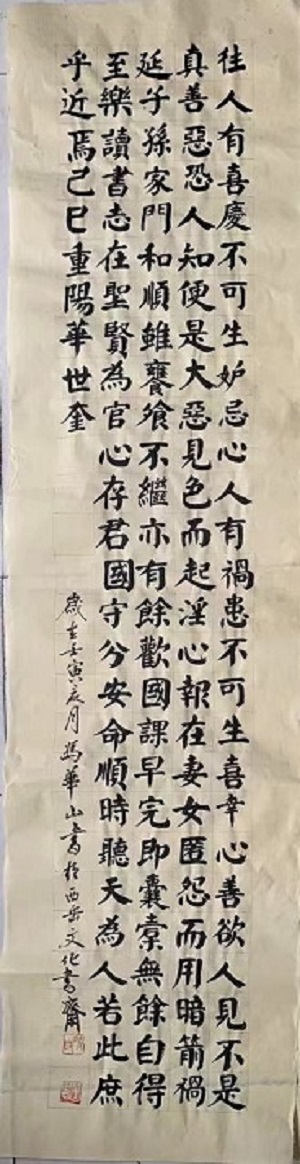 往人有喜慶不可生妒忌心人有禍患不可生喜幸心善欲人見不是
真善惡恐人知便是大惡見色而起淫心報在妻女匿怨而用暗箭禍
延子孫家門和順雖饔飧不繼亦有餘歡國課早完即囊橐無餘自得
至樂讀書志在聖賢為官心存君國守分安命順時聽天為人若此庶
乎近焉己巳重陽華世奎
歲在壬寅辰月馮華山書於西岳文化書齋